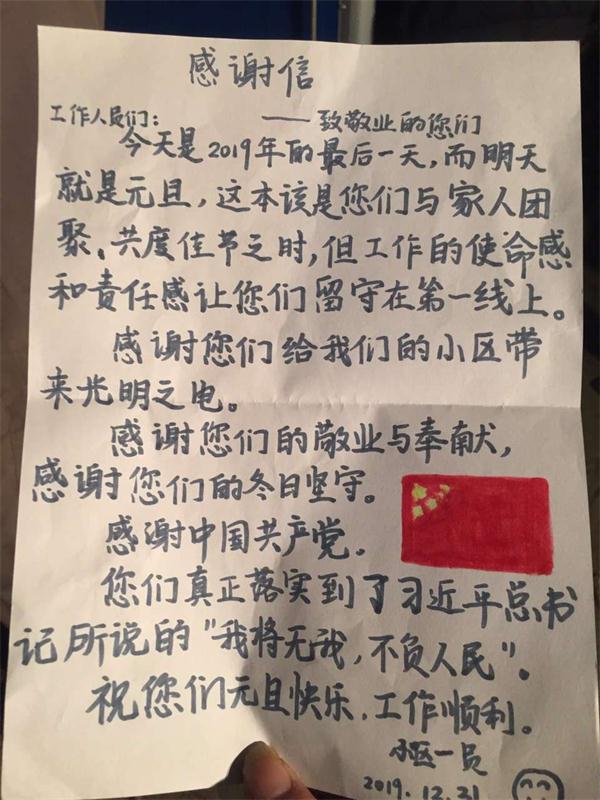 感谢信
——致敬业的您们
工作人员们：
今天是2019年的最后一天，而明天
就是元旦，这本该是您们与家人团
聚、共度佳节之时，但工作的使命感
和责任感让您们留守在第一线上。
感谢您们给我们的小区带
来光明之电。
感谢您们的敬业与奉献，
感谢您们的冬日坚守。
感谢中国共产党。
您们真正落实到了习近平总书
记所说的“我将无我，不负人民”。
祝您们元旦快乐，工作顺利。
小区一员
2019.12.31